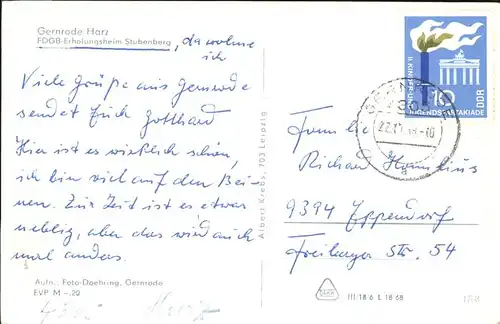 Gernrode Harz
FDGB-Erholungsheim Stubenberg, da wohne
ich
Viele Grüße aus Gernrode
sendet Euch Gotthard
Hier ist es wirklich schön,
ich bin viel auf den Bei-
nen. Zur Zeit ist es etwas
neblig, aber das wird auch
mal anders.
Aufn., Foto-Daehring, Gernrode
EVP M -.20
Albert Krebs, 703 Leipzig
II. KINDER-
JUGENDSPARTAKIADE
10 DDR
Familie
Richard
9394 Eppendorf
Freiberger Str. 54
III 18 6 L 18 68